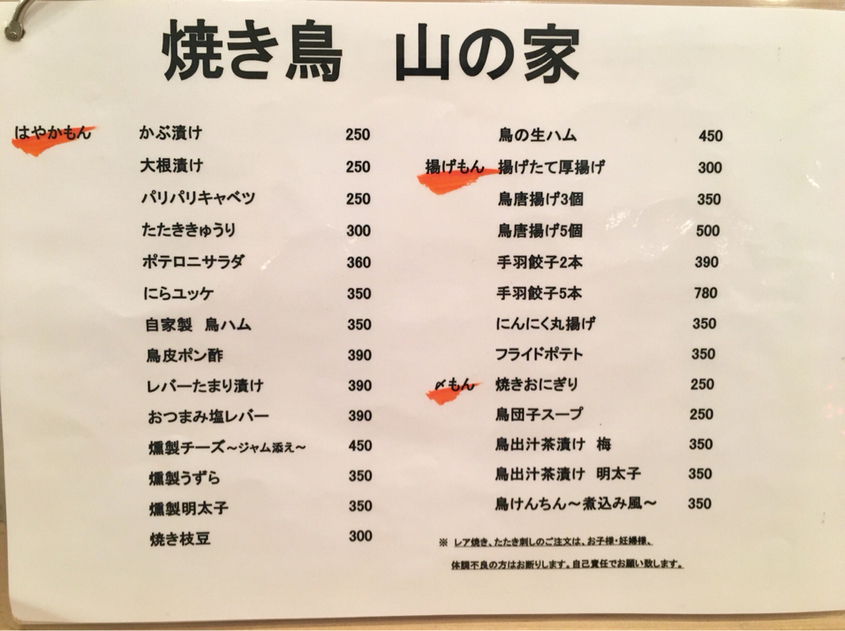 焼き鳥 山の家
はやかもん かぶ漬け 250
大根漬け 250
パリパリキャベツ 250
たたききゅうり 300
ポテロニサラダ 360
にらユッケ 350
自家製 鳥ハム 350
鳥皮ポン酢 390
レバーたまり漬け 390
おつまみ塩レバー 390
燻製チーズ～ジャム添え～ 450
燻製うずら 350
燻製明太子 350
焼き枝豆 300
鳥の生ハム 450
揚げもん 揚げたて厚揚げ 300
鳥唐揚げ3個 350
鳥唐揚げ5個 500
手羽餃子2本 390
手羽餃子5本 780
にんにく丸揚げ 350
フライドポテト 350
〆もん 焼きおにぎり 250
鳥団子スープ 250
鳥出汁茶漬け 梅 350
鳥出汁茶漬け 明太子 350
鳥けんちん～煮込み風～ 350
※ レア焼き、たたき刺しのご注文は、お子様・妊婦様、
体調不良の方はお断りします。自己責任でお願い致します。